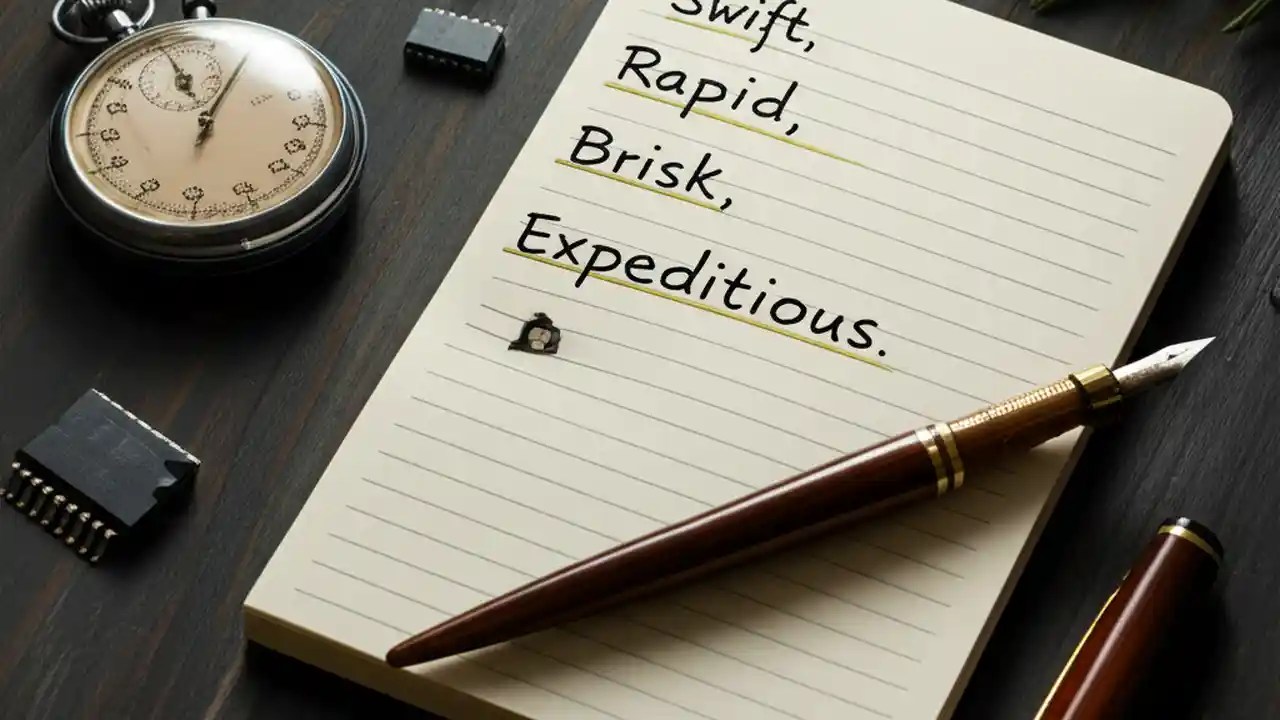 Swift,
Rapid,
Brisk,
Expeditious.